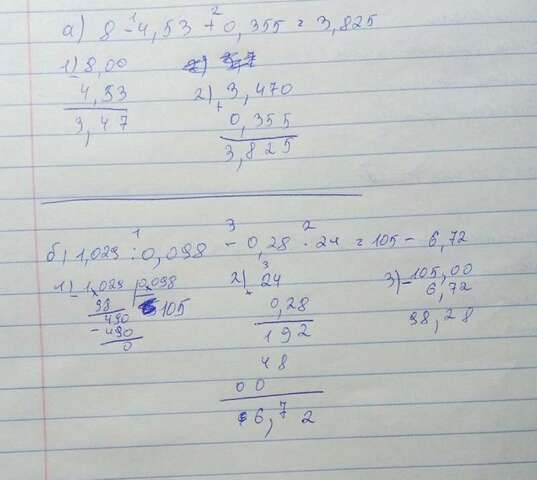 а) 8 - 4,53 + 0,355 = 3,825
1 2
1) 8,00
- 4,53
3,47
2) + 3,470
0,355
3,825
б) 1,029 : 0,098 - 0,28 · 24 = 105 - 6,72
1 3 2
1) 1,029 | 0,098
98 105
490
- 490
0
2) 24
3
0,28
192
48
00
6,72
3) - 105,00
6,72
98,28